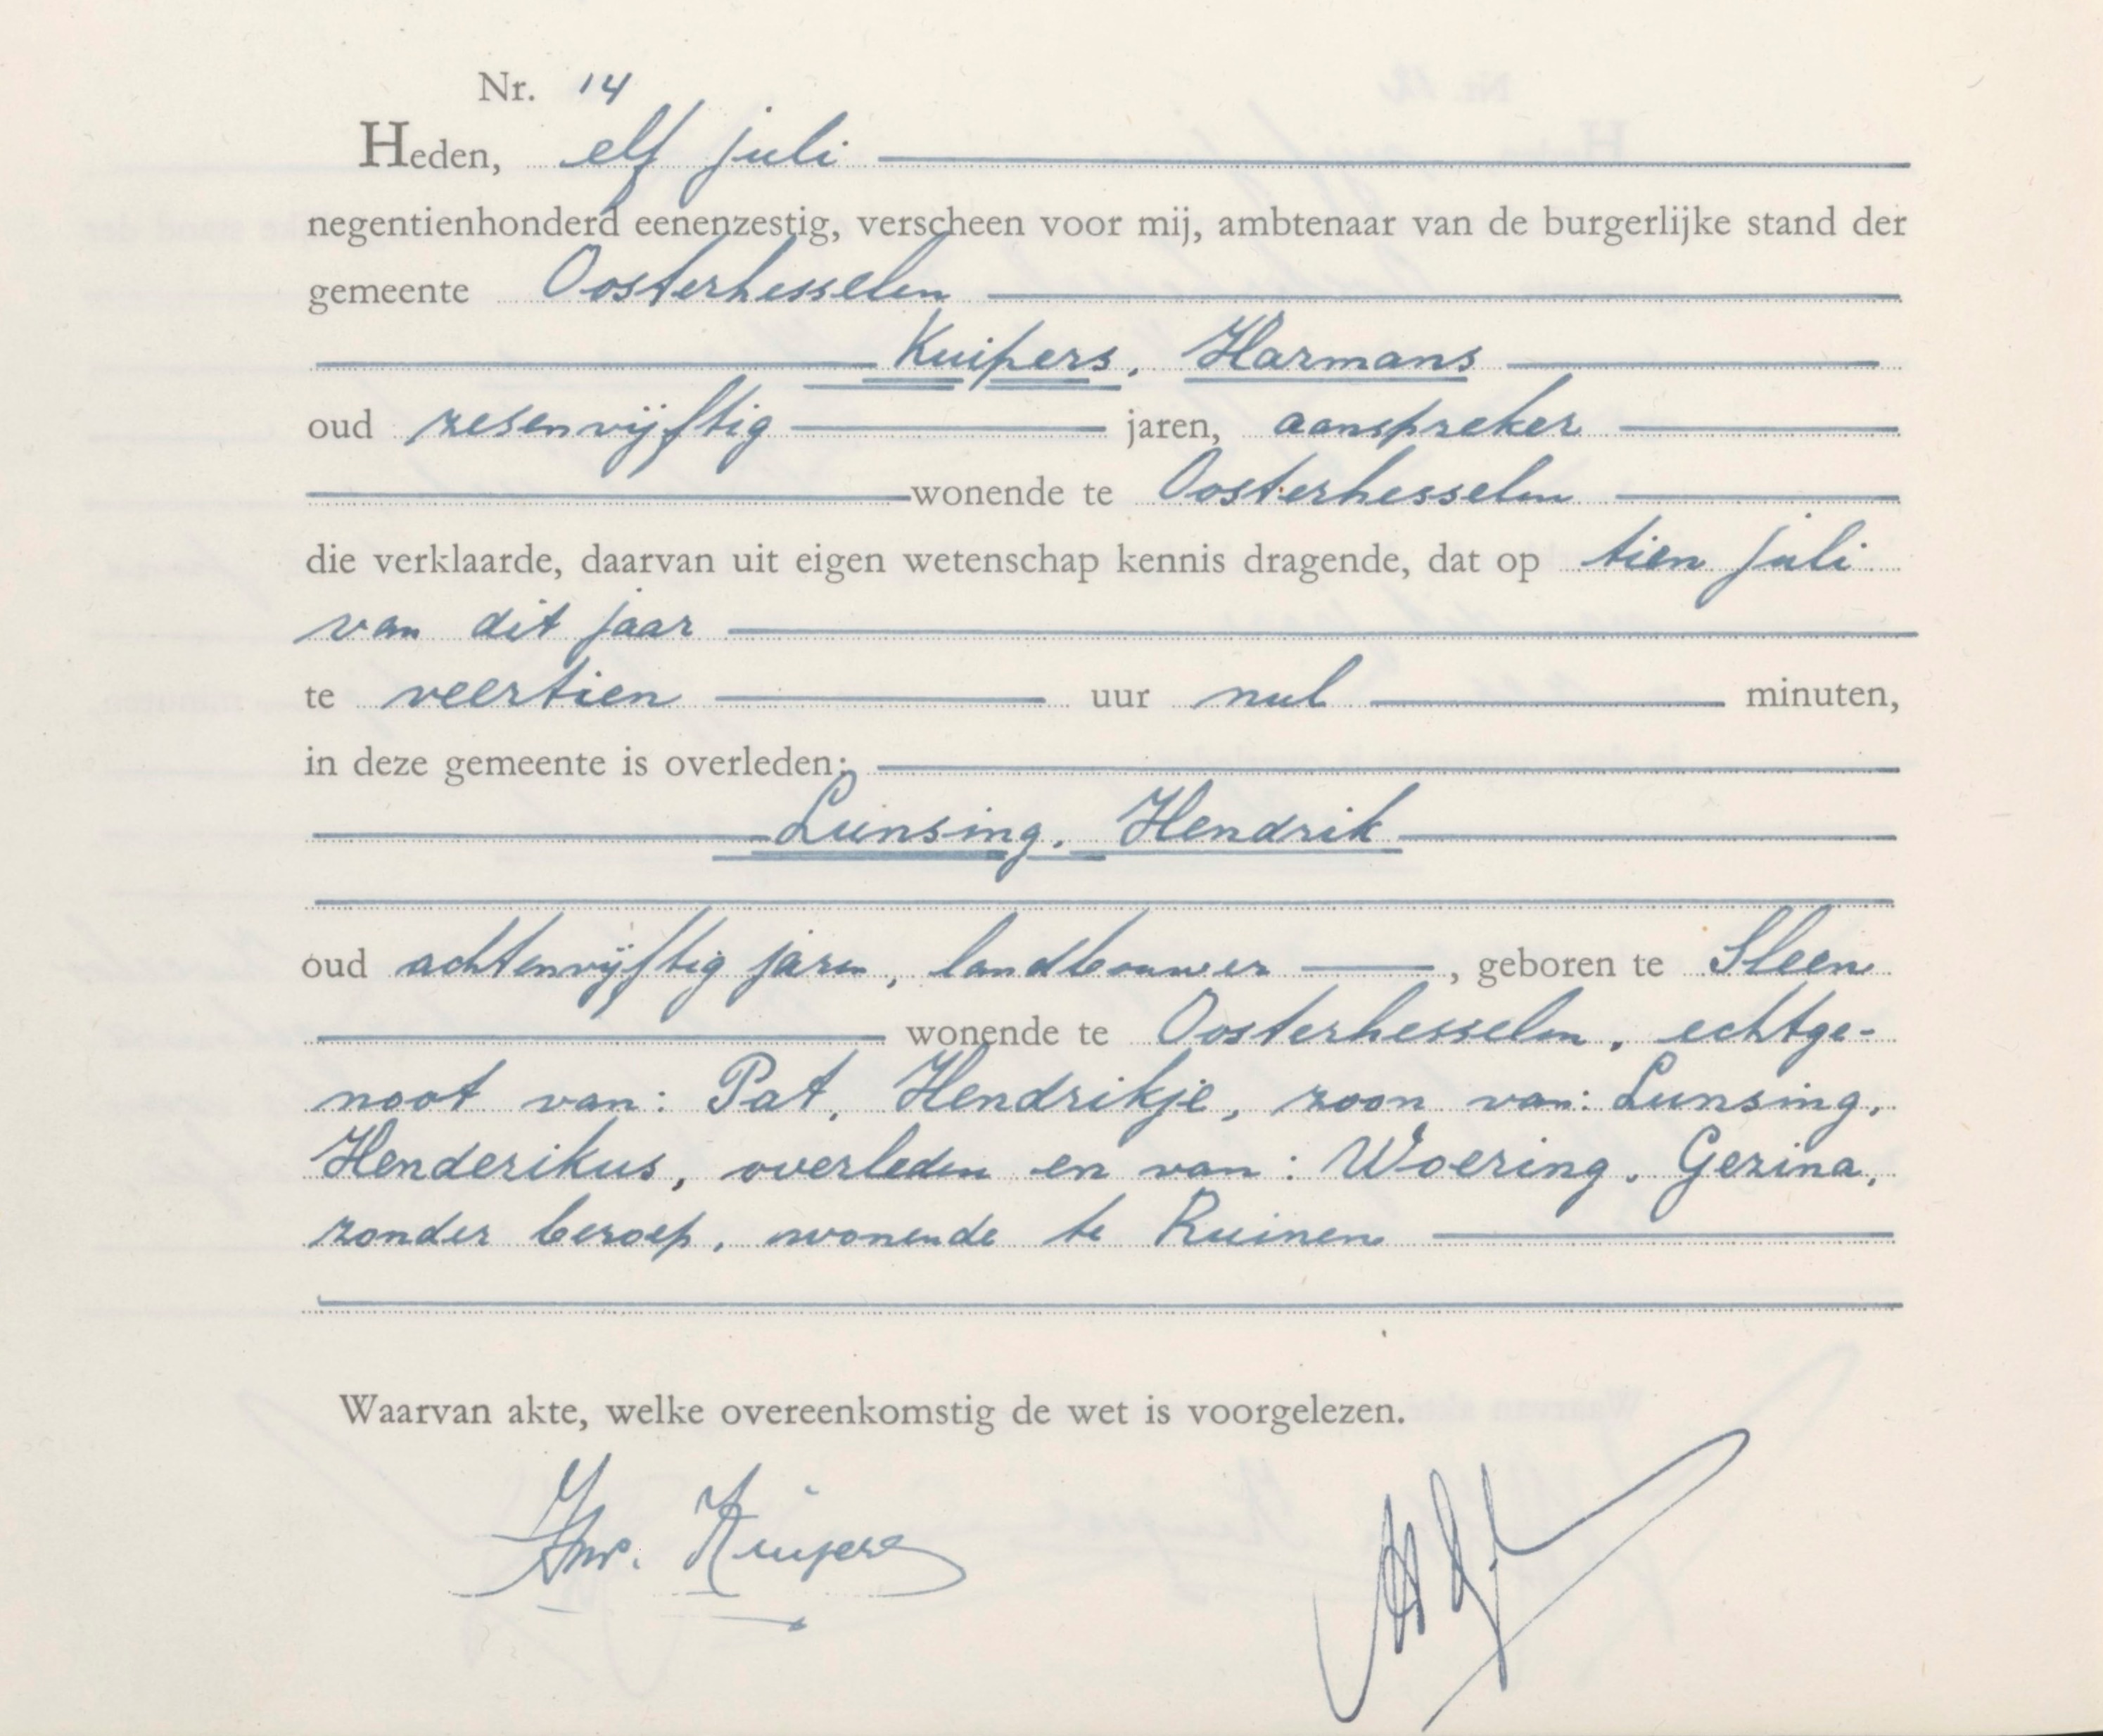 Nr. 14
Heden, elf juli
negentienhonderd eenenzestig, verscheen voor mij, ambtenaar van de burgerlijke stand der
gemeente Oosterhesselen
Kuipers, Harmans
oud zesenvijftig jaren, aanspreker
wonende te Oosterhesselen
die verklaarde, daarvan uit eigen wetenschap kennis dragende, dat op tien juli
van dit jaar
te veertien uur nul minuten,
in deze gemeente is overleden:
Lunsing, Hendrik
oud achtenvijftig jaren, landbouwer , geboren te Sleen
wonende te Oosterhesselen, echtge-
noot van: Pat, Hendrikje, zoon van: Lunsing,
Henderikus, overleden en van: Woering, Gezina,
zonder beroep, wonende te Ruinen
Waarvan akte, welke overeenkomstig de wet is voorgelezen.
Kuipers